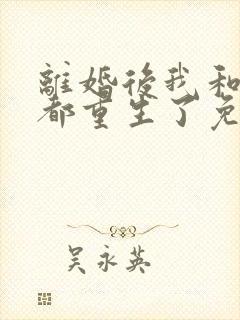 離婚後我和
都重生了免
吴永英